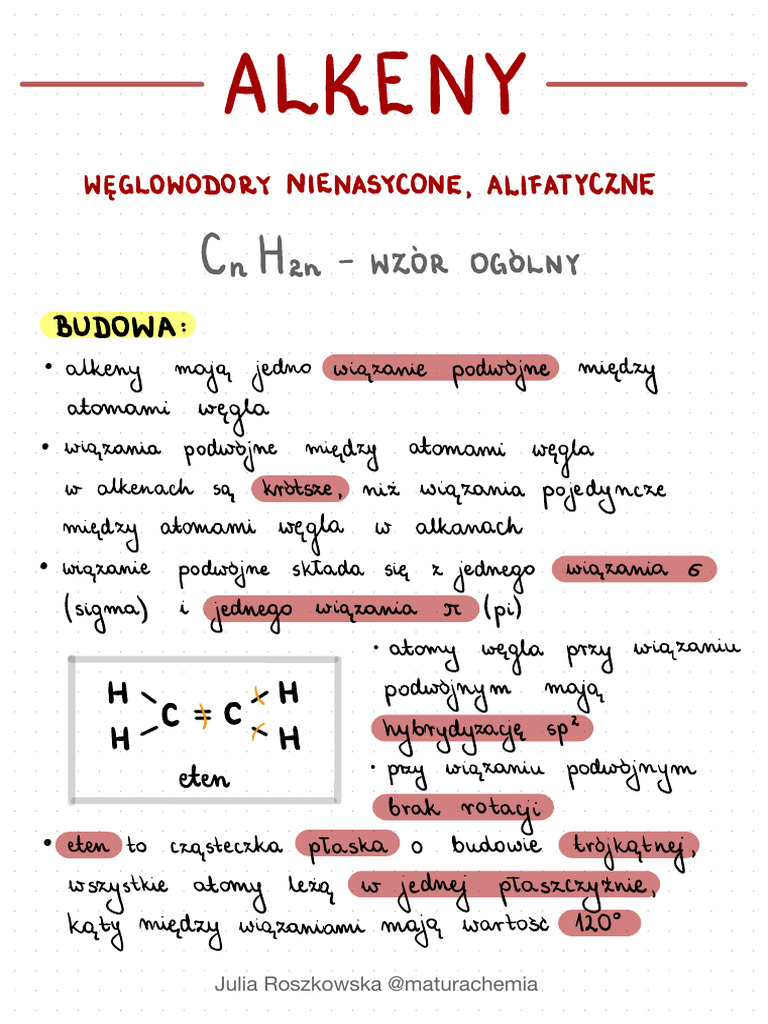 ALKENY
WĘGLOWODORY NIENASYCONE, ALIFATYCZNE
CnH2n - WZÓR OGÓLNY
BUDOWA:
• alkeny mają jedno wiązanie podwójne między
atomami węgla
• wiązania podwójne między atomami węgla
w alkenach są krótsze, niż wiązania pojedyncze
między atomami węgla w alkanach
• wiązanie podwójne składa się z jednego wiązania σ
(sigma) i jednego wiązania π (pi)
H H
C = C
H H
eten
• atomy węgla przy wiązaniu
podwójnym mają
hybrydyzację sp²
• przy wiązaniu podwójnym
brak rotacji
• eten to cząsteczka płaska o budowie trójkątnej,
wszystkie atomy leżą w jednej płaszczyźnie,
kąty między wiązaniami mają wartość 120°
Julia Roszkowska @maturachemia